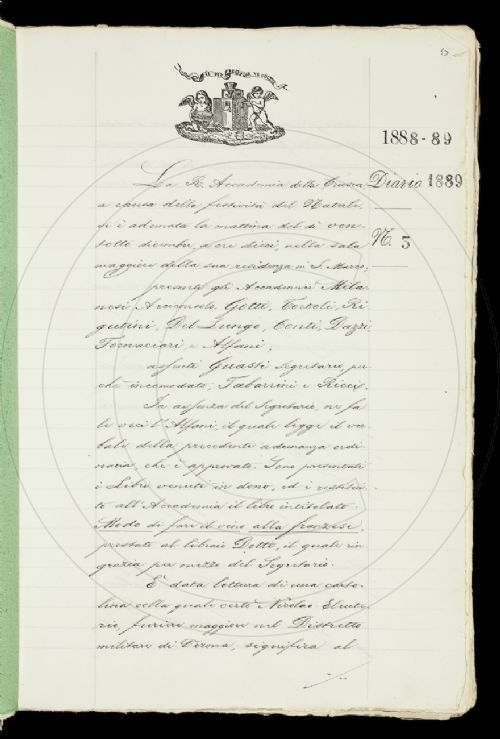 1888-89
Diario 1889
N. 5
La R. Accademia della Crusca,
a causa delle festività del Natale,
si è adunata la mattina del dì ven-
totto dicembre, a ore dieci, nella sala
maggiore della sua residenza in S. Marco;
presenti gli Accademici Mila-
nesi, Arciconsolo, Gotti, Tortoli, Ri-
gutini, Del Lungo, Conti, Dazzi
Tornaciari, e Alfani;
assenti Guasti Segretario, per-
chè incomodato, Tabarrini e Ricci.
In assenza del Segretario, ne fa
le veci l'Alfani, il quale legge il ver-
bale della precedente adunanza ordi-
naria, che è approvato. Sono presentati
i Libri venuti in dono, ed è restitui-
to all'Accademia il libro intitolato
Modo di fare il vino alla franzese,
prestato al libraio Dotti, il quale rin-
grazia per mezzo del Segretario.
È data lettura di una carto-
lina colla quale certo Nicolao Eleute-
rio, furiere maggiore nel Distretto
militare di Verona, significa al